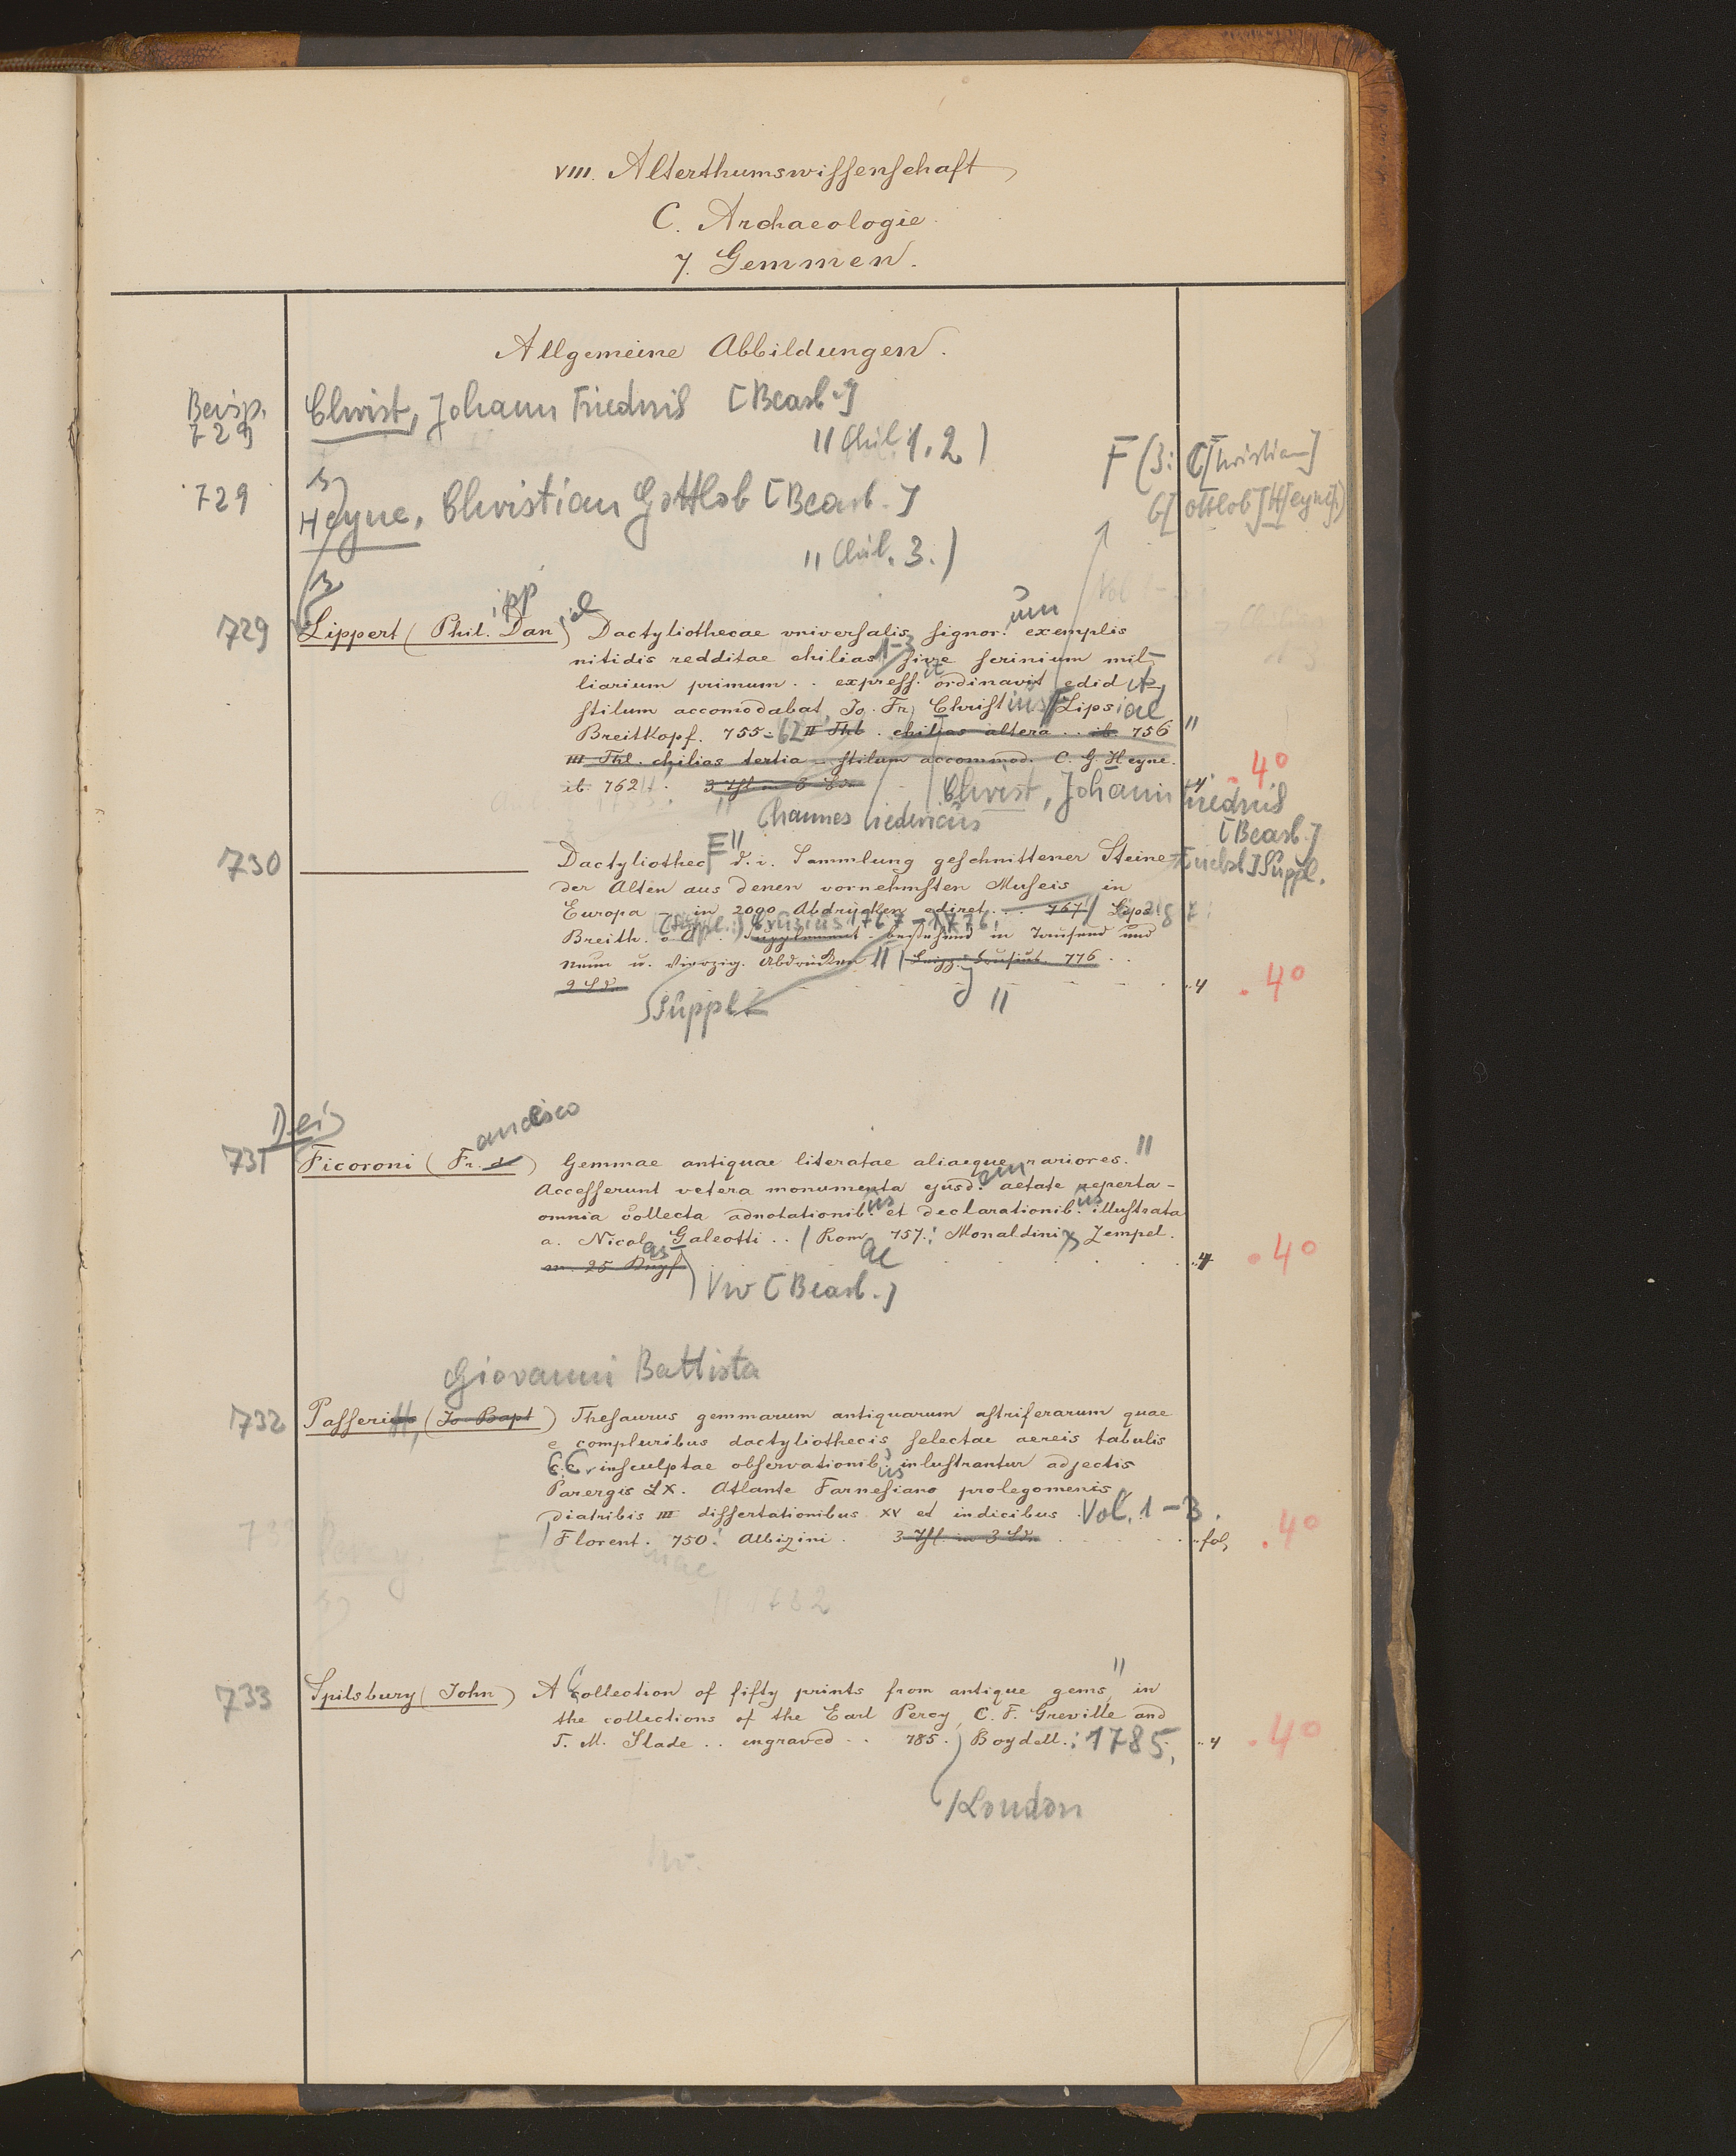 VIII. Alterthumswissenschaft
C. Archaeologie
7. Gemmen.
Allgemeine Abbildungen.
Beisp. 729 Christ, Johann Friedrich [Bearb.]
" Chil. 1. 2)
729 Heyne, Christian Gottlob [Bearb.]
" Chil. 3.)
F (3: C[hristian]
G[ottlob] H[eyne])
729 Lippert (Phil.ipp Dan.iel) Dactyliothecae vniversalis signor.um exemplis
nitidis redditae chilias 1-3 sive scrinium mil-
liarium primum .. express.it ordinavit edidit
stilum accomodabat Jo. Fr. Christius // Lipsiae
Breitkopf. 755-62 II Thl. chilias altera .. ib. 756 "
III Thl. chilias tertia - stilum accommod. C. G. Heyne.
ib. 762. 4 . 40
Christ, Johann Friedrich
[Bearb.]
ohannes riedericus
730 Dactyliothec d. i. Sammlung geschnittener Steine
der Alten aus denen vornehmsten Museis in
Europa in 2000 Abdrücken ediret ... 767 / Leipzig:
(Suppl.:) Crusius 1767-1776.
Breitk. Supplement bestehend in Tausend und
neun u. Vierzig Abdrücken " Leipz. Crusius. 776 ..
.. 4 . 40
Suppl "
Dei
731 Ficoroni (Fr.ancesco d) Gemmae antiquae literatae aliaeque rariores. "
Accesserunt vetera monumenta ejusd.em aetate reperta -
omnia collecta adnotationib.us et declarationib.us illustrata
a. Nicolas Galeotti .. / Romae 757. : Monaldini Zempel.
.. 4 . 40
Vw [Bearb.]
Giovanni Battista
732 Passerius (Jo. Bapt) Thesaurus gemmarum antiquarum astriferarum quae
e compluribus dactyliothecis selectae aereis tabulis
CC. insculptae observationib.us inlustrantur adjectis
Parergis LX. Atlante Farnesiano prolegomenis
diatribis III dissertationibus XV et indicibus Vol. 1-3.
/ Florent. 750. : Albizini. .. fol. . 40
733 Spilsbury (John) A Collection of fifty prints from antique gems " in
the collections of the Earl Percy, C. F. Greville and
T. M. Slade .. engraved .. 785. ) Boydell. : 1785. .. 4 . 40
/ London